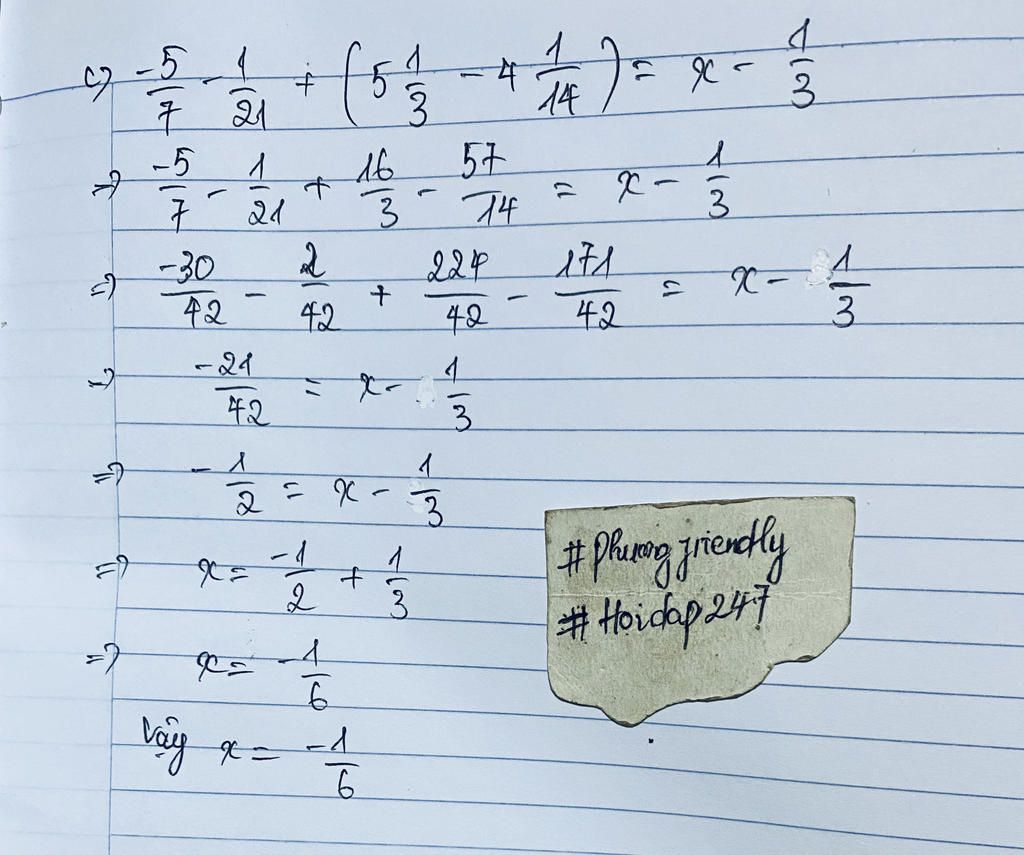 c) -5/7 - 1/21 + (5 1/3 - 4 1/14) = x - 1/3
=> -5/7 - 1/21 + 16/3 - 57/14 = x - 1/3
=> -30/42 - 2/42 + 224/42 - 171/42 = x - 1/3
=> -21/42 = x - 1/3
=> -1/2 = x - 1/3
=> x = -1/2 + 1/3
=> x = -1/6
Vậy x = -1/6
# Phuong friendly
# Hoidap247